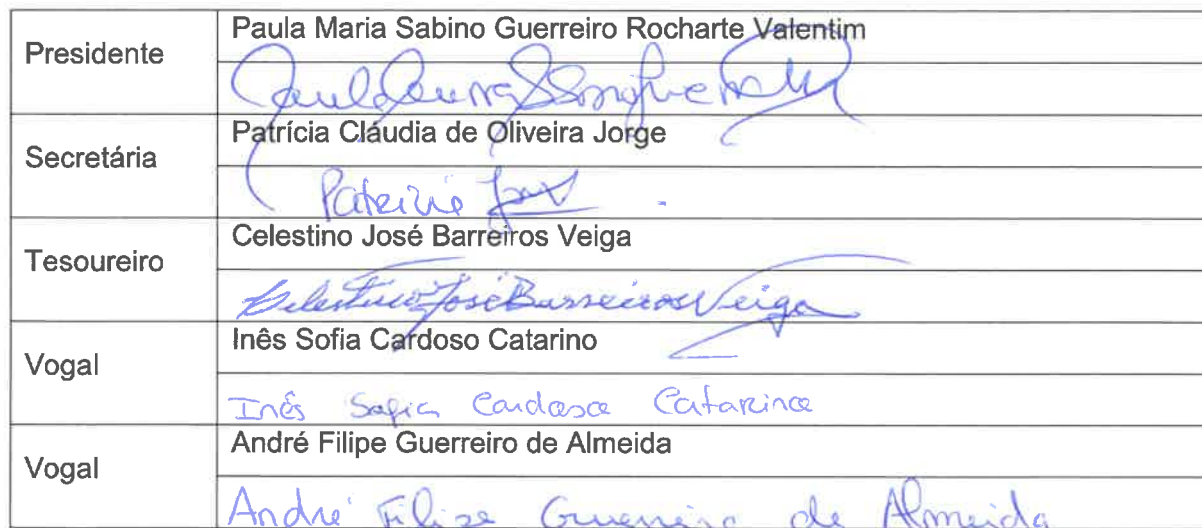 Presidente
Paula Maria Sabino Guerreiro Rocharte Valentim
Secretária
Patrícia Cláudia de Oliveira Jorge
Patrícia
Tesoureiro
Celestino José Barreiros Veiga
Celestino José Barreiros Veiga
Vogal
Inês Sofia Cardoso Catarino
Inês Sofia Cardoso Catarino
Vogal
André Filipe Guerreiro de Almeida
André Filipe Guerreiro de Almeida